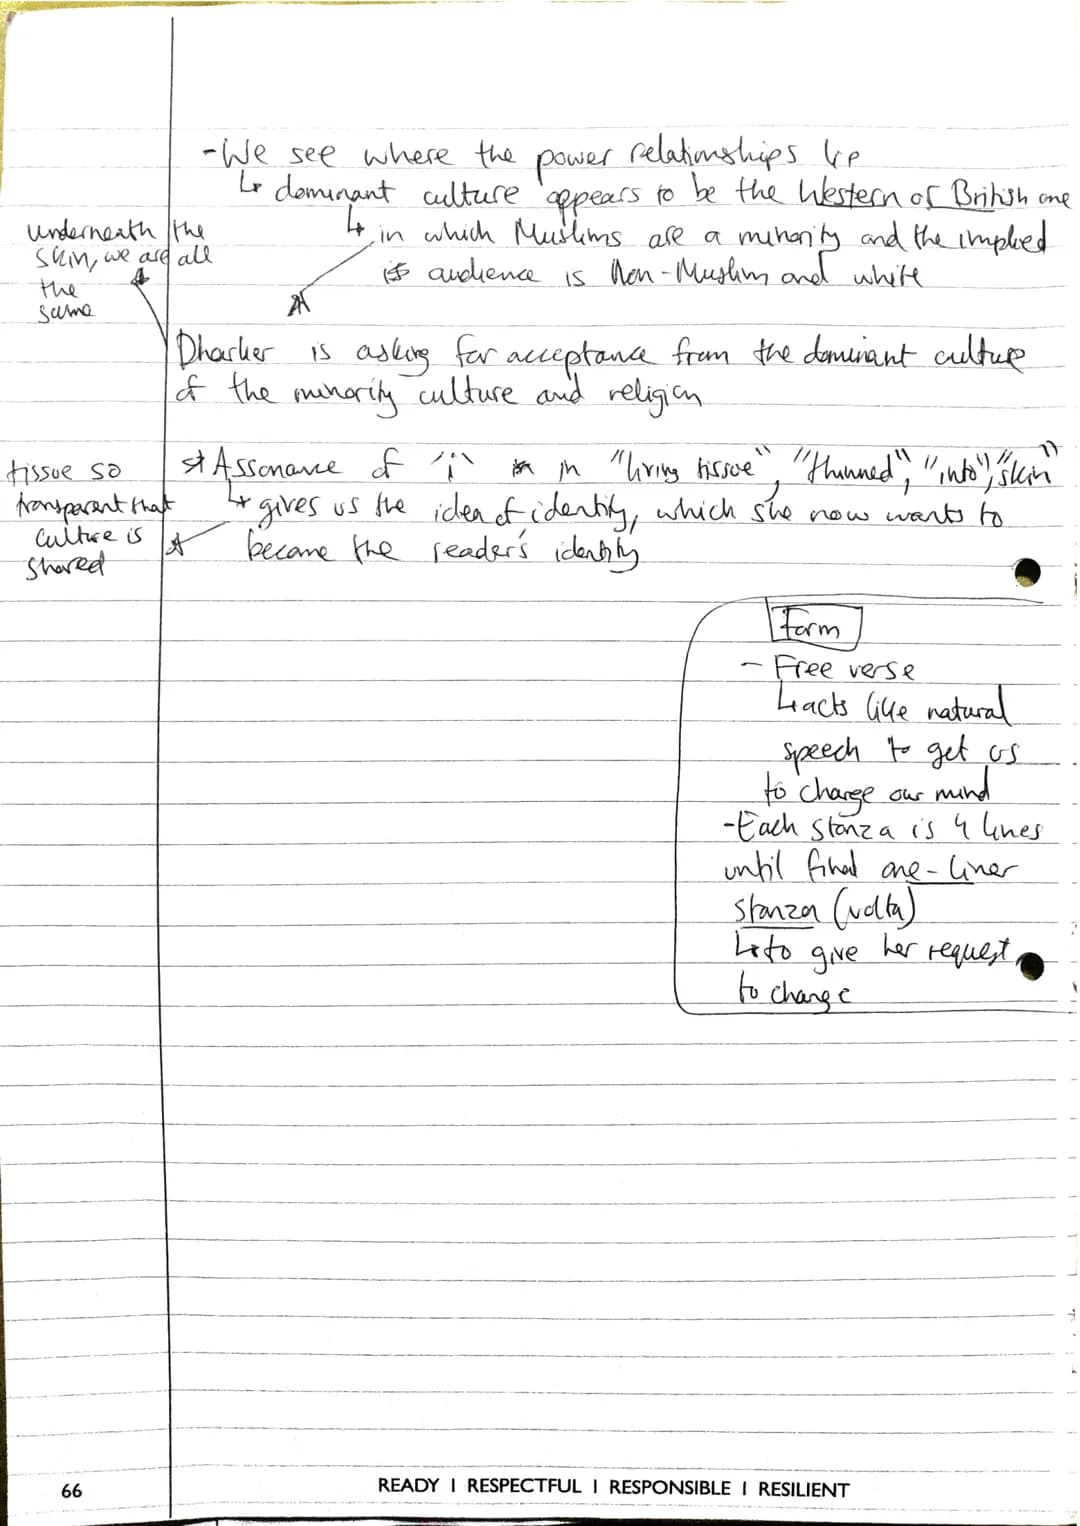 - We see where the power relationships lie
↳ dominant culture appears to be the Western of British one
↳ in which Muslims are a minority and the implied
audience is Non-Muslim and white
underneath the
skin, we are all
the
same
Dharker is asking for acceptance from the dominant culture
of the minority culture and religion
* Assonance of "i" in "living tissue", "thinned", "into", "skin"
↳ gives us the idea of identity, which she now wants to
become the reader's identity
tissue so
transparent that
culture is
shared
Form
- Free verse
↳ acts like natural
speech to get us
to change our mind
- Each stanza is 4 lines
until final one-liner
stanza (volta)
↳ to give her request
to change
66
READY | RESPECTFUL | RESPONSIBLE | RESILIENT